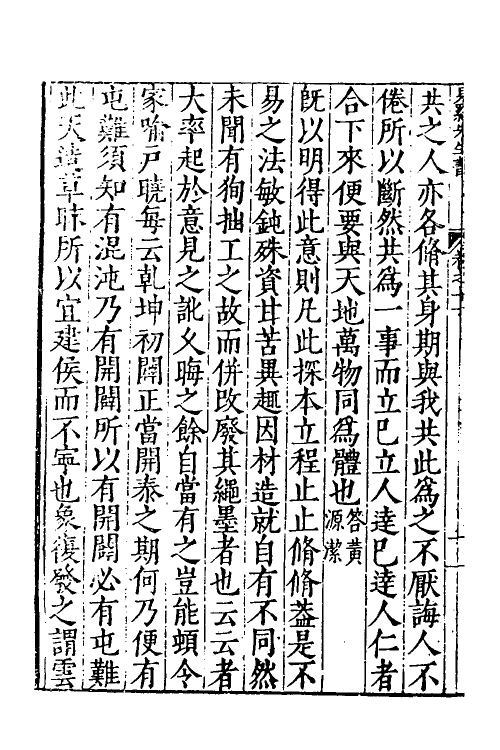 共之人亦各脩其身期與我共此爲之不厭誨人不
倦所以斷然共爲一事而立己立人達己達人仁者
合下來便要與天地萬物同爲體也答黄源潔
旣以明得此意則凡此探本立程止止脩脩葢是不
易之法敏鈍殊資甘苦異趣因材造就自有不同然
未聞有狥拙工之故而併改廢其繩墨者也云云者
大率起於意見之訛久晦之餘自當有之豈能頓令
家喻戸曉每云乾坤初闢正當開泰之期何乃便有
屯難須知有混沌乃有開闢所以有開闢必有屯難
此天造草昧所以宜建侯而不寧也象復發之謂雲